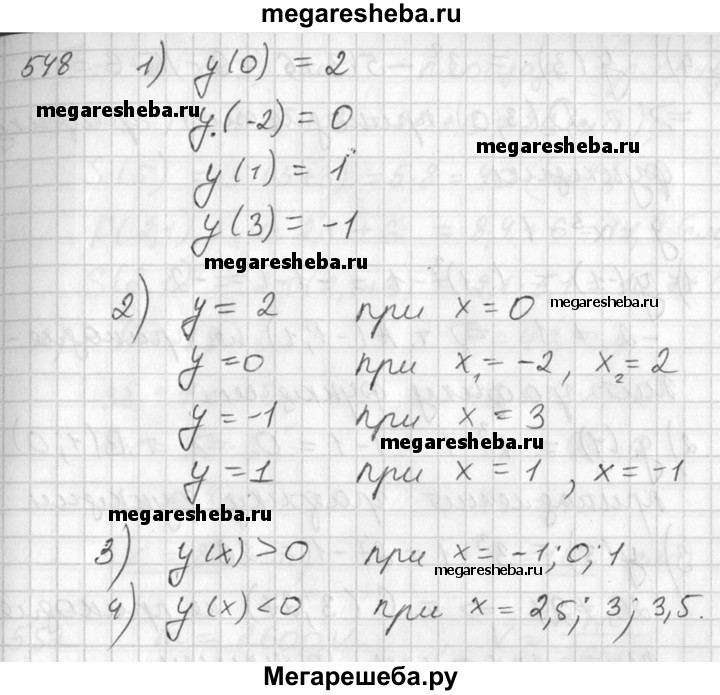 megaresheba.ru
548 1) y(0) = 2
megaresheba.ru
y(-2) = 0
megaresheba.ru
y(1) = 1
y(3) = -1
megaresheba.ru
2) y = 2 при x = 0
megaresheba.ru
y = 0 при x₁ = -2, x₂ = 2
y = -1 при x = 3
megaresheba.ru
y = 1 при x = 1, x = -1
megaresheba.ru
3) y(x) > 0 при x = -1; 0; 1
megaresheba.ru
4) y(x) < 0 при x = 2,5; 3; 3,5.
Мегарешеба.ру